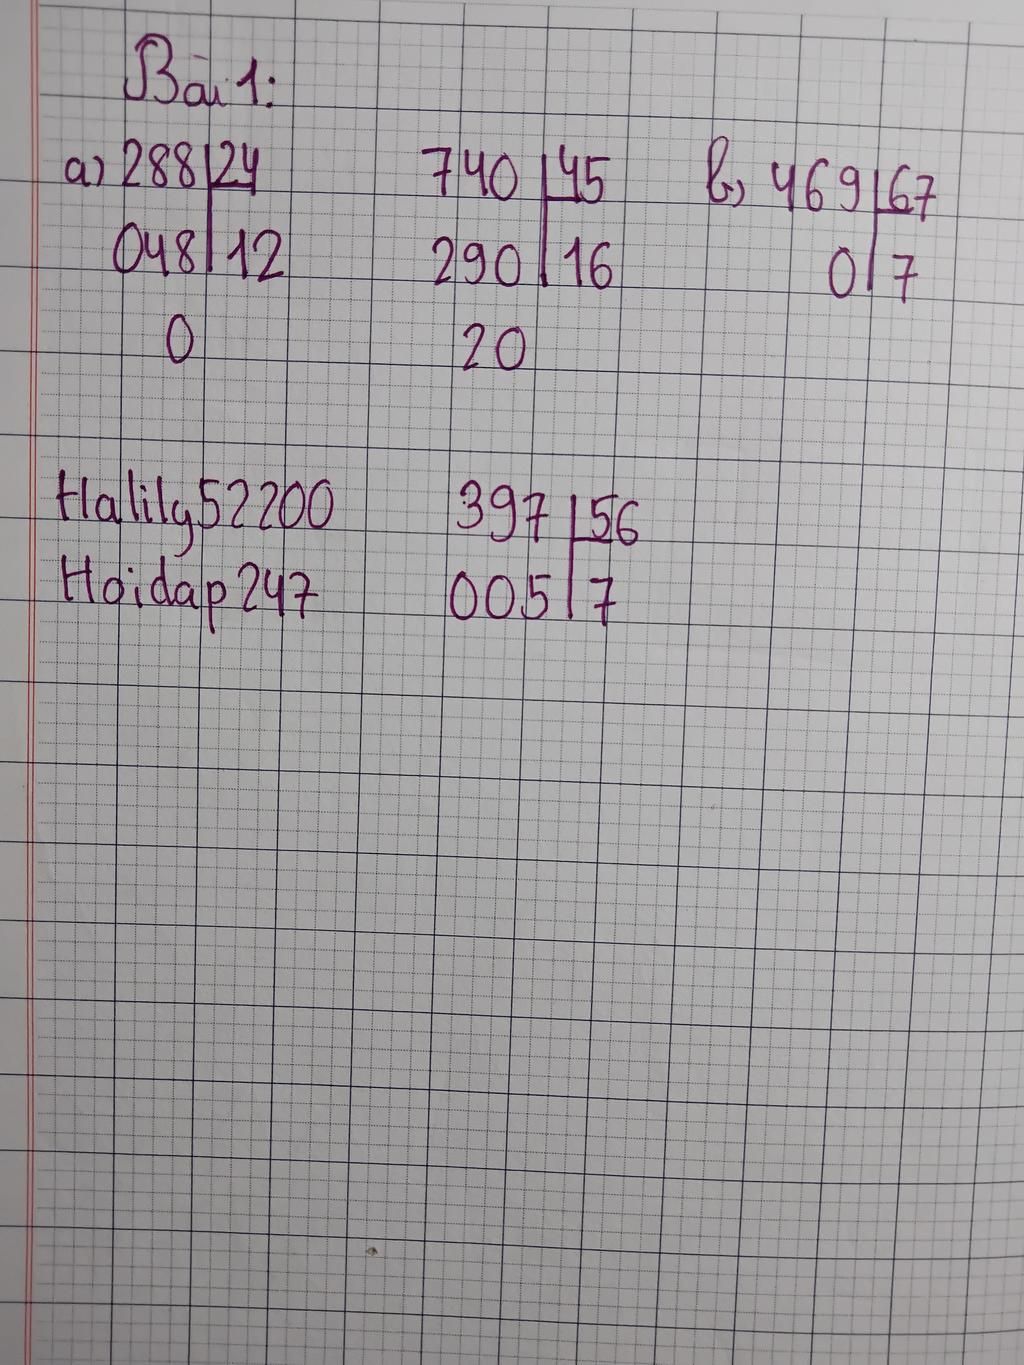 Bài 1:
a) 288 24 740 45 b) 469 67
048 12 290 16 0 7
0 20
Halily52200 397 56
Hoidap247 005 7